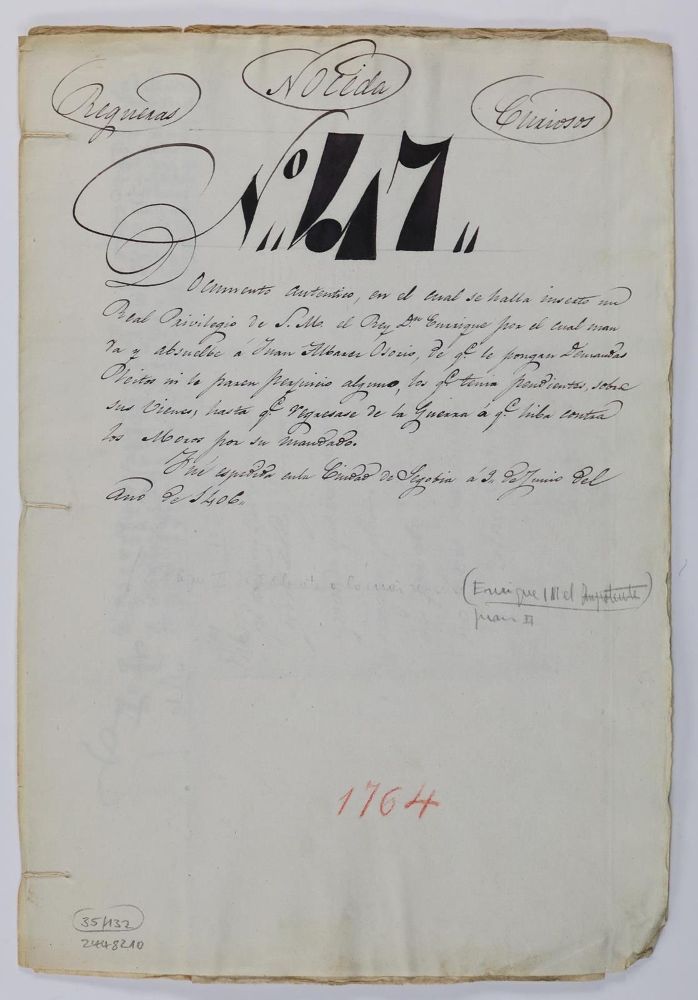 Regueras
Noceda
Curiosos
Nº„47„
Documento autentico, en el cual se halla inserto un
Real Privilegio de S. M. el Rey Dn Enrique por el cual man
da y absuelbe á Juan Albarez Osorio, de qe. le pongan Demandas
Pleitos ni le paren perjuicio alguno, los qe. tenia pendientes, sobre
sus vienes, hasta qe. regresase de la Guerra á qe. hiba contra
los Moros por su mandado.
Fué espedida en la Ciudad de Segobia á 3„ de Junio del
Año de 1406„
(Enrique III el Impotente)
Juan II
1764
35/132
2448210